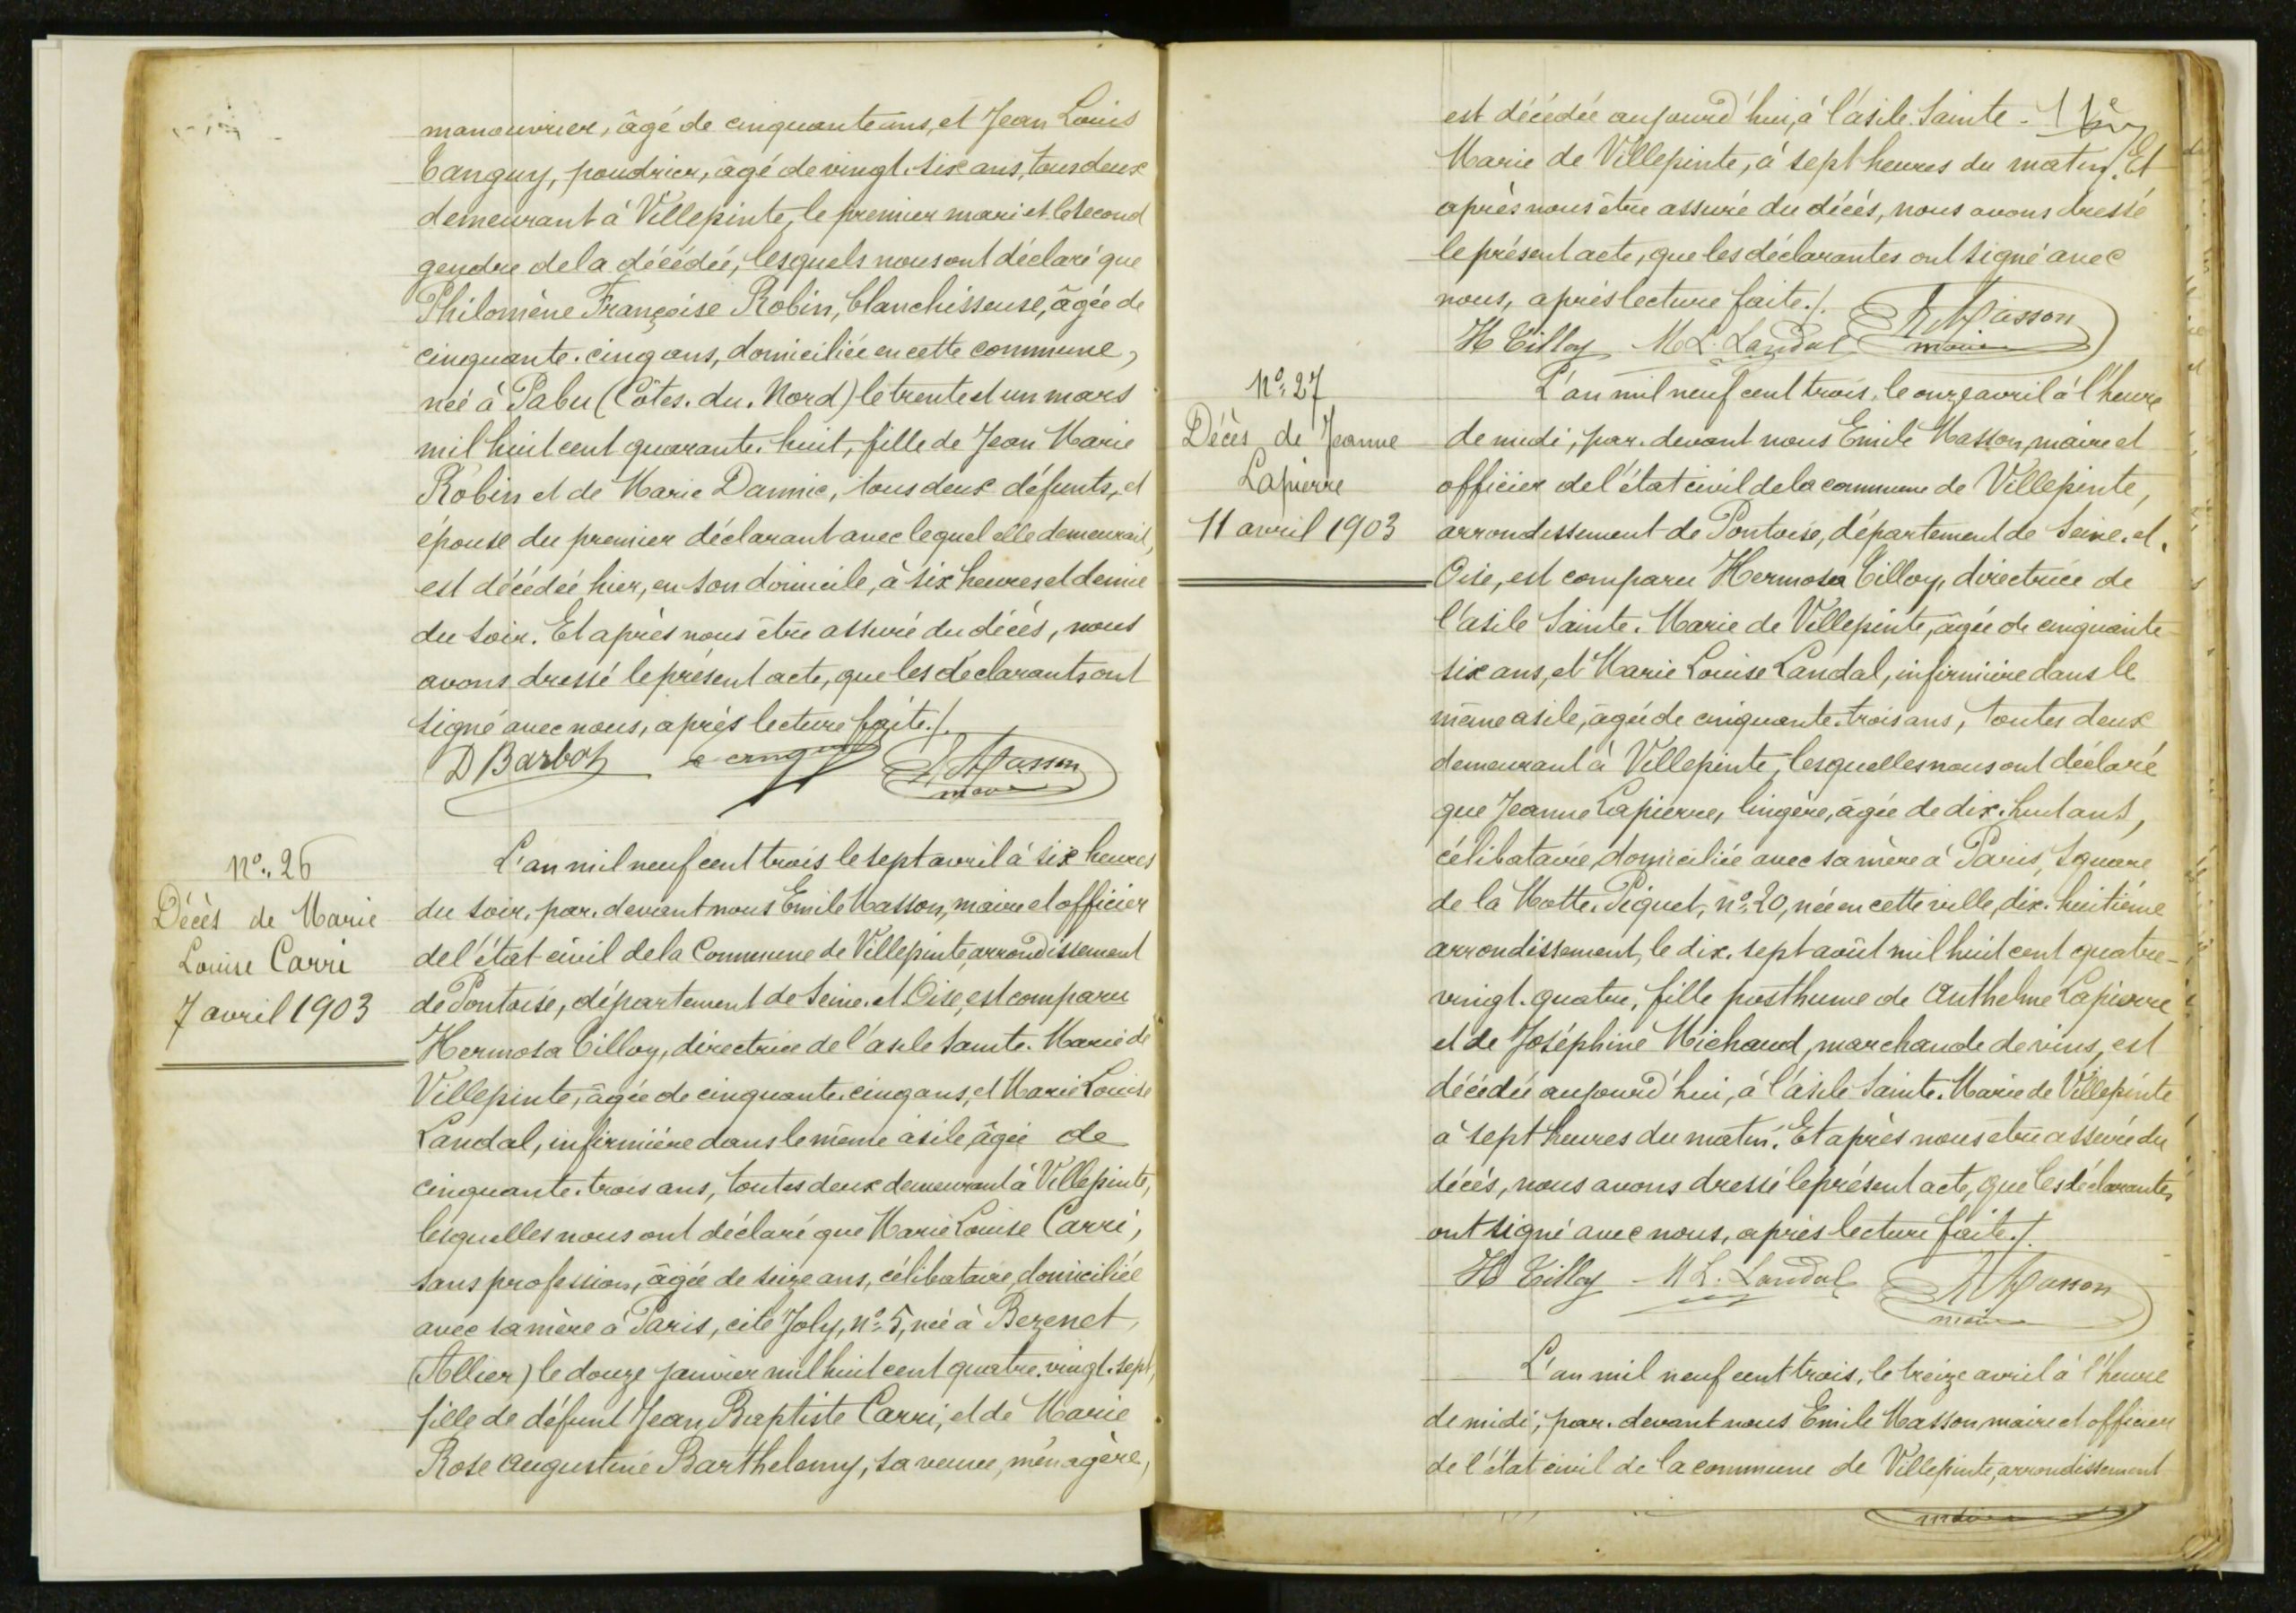 manouvrier, âgé de cinquante ans, et Jean Louis
Tanguy, poudrier, âgé de vingt-six ans, tous deux
demeurant à Villepinte, le premier mari et le second
gendre de la décédée, lesquels nous ont déclaré que
Philomène Françoise Robin, blanchisseuse, âgée de
cinquante-cinq ans, domiciliée en cette commune,
née à Pabu (Côtes-du-Nord) le trente et un mars
mil huit cent quarante-huit, fille de Jean Marie
Robin et de Marie Dannic, tous deux défunts, et
épouse du premier déclarant avec lequel elle demeurait,
est décédée hier, en son domicile, à six heures et demie
du soir. Et après nous être assuré du décès, nous
avons dressé le présent acte, que les déclarants ont
signé avec nous, après lecture faite ./.
D Barbot E Masson
maire
N° 26
Décès de Marie
Louise Carri
7 avril 1903
L'an mil neuf cent trois le sept avril à six heures
du soir, par-devant nous Emile Masson, maire et officier
de l'état civil de la Commune de Villepinte, arrondissement
de Pontoise, département de Seine-et-Oise, est comparu
Hermosa Tilloy, directrice de l'asile Sainte-Marie de
Villepinte, âgée de cinquante-cinq ans, et Marie Louise
Landal, infirmière dans le même asile, âgée de
cinquante-trois ans, toutes deux demeurant à Villepinte,
lesquelles nous ont déclaré que Marie Louise Carri,
sans profession, âgée de seize ans, célibataire, domiciliée
avec sa mère à Paris, cité Joly, n° 5, née à Bezenet,
(Allier) le douze janvier mil huit cent quatre-vingt-sept,
fille de défunt Jean Baptiste Carri, et de Marie
Rose Augustine Barthelemy, sa veuve, ménagère,
est décédée aujourd'hui, à l'asile Sainte-
Marie de Villepinte, à sept heures du matin. Et
après nous être assuré du décès, nous avons dressé
le présent acte, que les déclarantes ont signé avec
nous, après lecture faite ./.
H Tilloy M L. Landal E Masson
maire
N° 27
Décès de Jeanne
Lapierre
11 avril 1903
L'an mil neuf cent trois, le onze avril à l'heure
de midi, par-devant nous Emile Masson, maire et
officier de l'état civil de la commune de Villepinte,
arrondissement de Pontoise, département de Seine-et-
Oise, est comparu Hermosa Tilloy, directrice de
l'asile Sainte-Marie de Villepinte, âgée de cinquante
six ans, et Marie Louise Landal, infirmière dans le
même asile, âgée de cinquante-trois ans, toutes deux
demeurant à Villepinte, lesquelles nous ont déclaré
que Jeanne Lapierre, lingère, âgée de dix-huit ans,
célibataire, domiciliée avec sa mère à Paris, square
de la Motte-Piquet, n° 20, née en cette ville, dix-huitième
arrondissement, le dix-sept août mil huit cent quatre-
vingt-quatre, fille posthume de Anthelme Lapierre
et de Joséphine Michaud, marchande de vins, est
décédée aujourd'hui, à l'asile Sainte-Marie de Villepinte
à sept heures du matin. Et après nous être assuré du
décès, nous avons dressé le présent acte, que les déclarantes
ont signé avec nous, après lecture faite ./.
H Tilloy M L. Landal E Masson
maire
L'an mil neuf cent trois, le treize avril à l'heure
de midi, par-devant nous Emile Masson, maire et officier
de l'état civil de la commune de Villepinte, arrondissement
maire